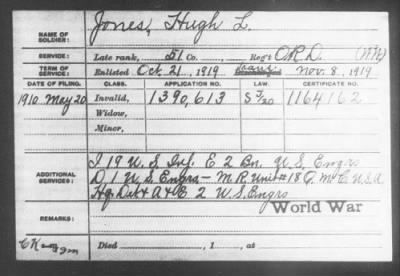 Jones, Hugh L.
NAME OF SOLDIER:
SERVICE: Late rank, 51 Co., Reg't O.R.D. (WW)
TERM OF SERVICE: Enlisted Oct. 21, 1919 Nov. 8, 1919
DATE OF FILING. CLASS. APPLICATION NO. LAW. CERTIFICATE NO.
1910 May 20 Invalid, 1390,613 S 3/20 1164162
Widow,
Minor,
I 19 U.S. Inf. E 2 Bn. U.S. Engrs
ADDITIONAL SERVICES: D 1 U.S. Engrs - M.R. Unit #18 Q.M.C. U.S.A
Hq. Det & A & E 2 U.S. Engrs
World War
REMARKS:
Died , 1 , at